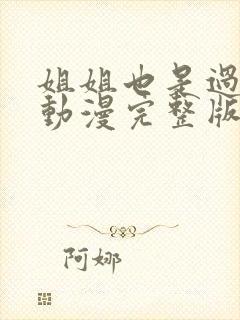 姐姐也是過
動漫完整版
阿娜